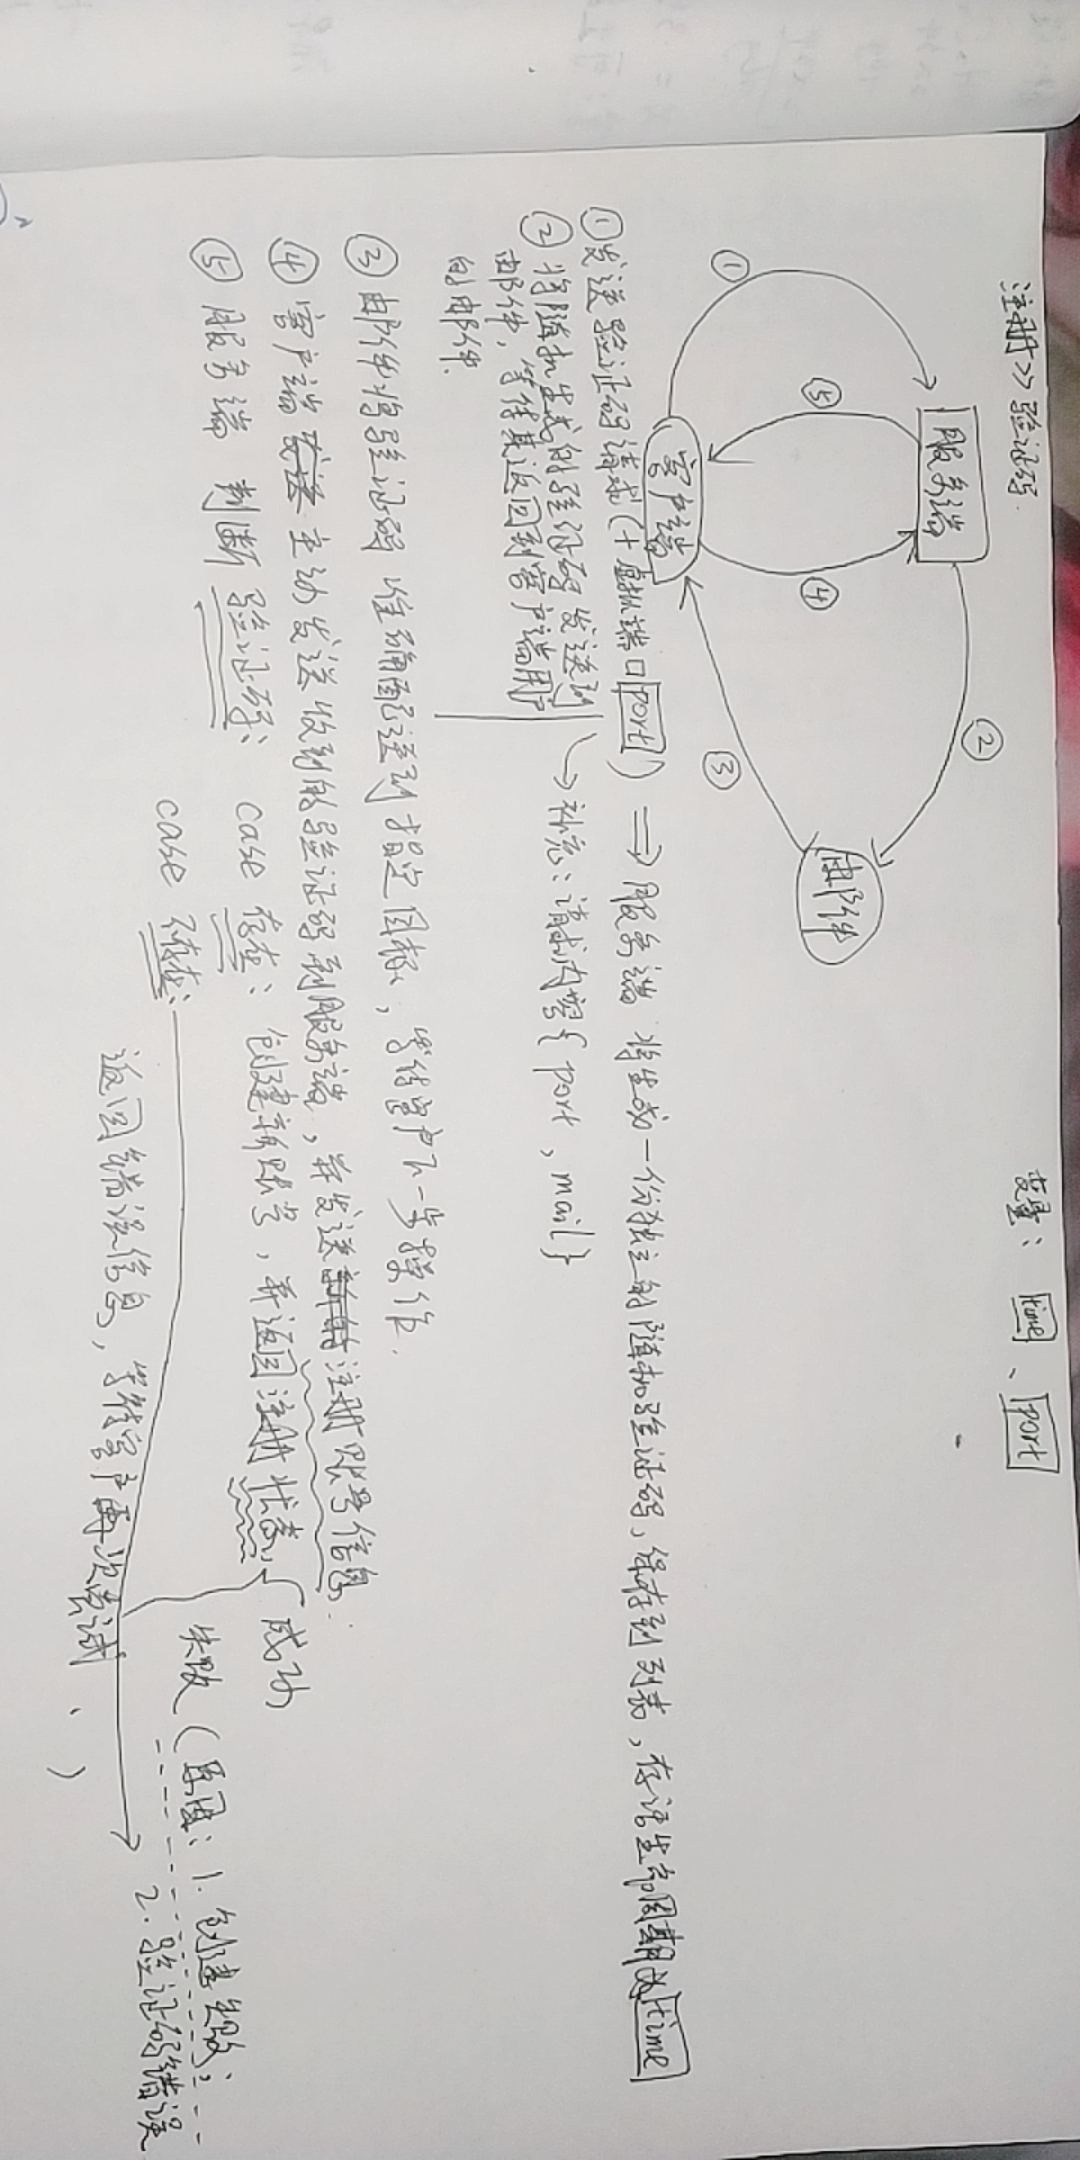 注册>>验证码.
变量: time、port
服务端
②
邮件
⑤
④
①
③
客户端
①发送验证码请求(+虚拟端口port) ⇒ 服务端 将生成一份独立的随机验证码,保存到列表,存活生命周期为time
②将随机生成的验证码发送到
邮件,等待其返回到客户端用户
的邮件.
补充:请求内容{port,mail}
③邮件将验证码 准确配送到指定目标,等待客户下一步操作.
④客户端发送主动发送收到的验证码到服务端,并发送新的注册账号信息.
⑤服务端 判断验证码: case 存在:创建新账号,并返回注册状态, 成功
失败(原因:1.创建失败;
2.验证码错误
case 不存在:
返回错误信息,等待客户再次尝试、)